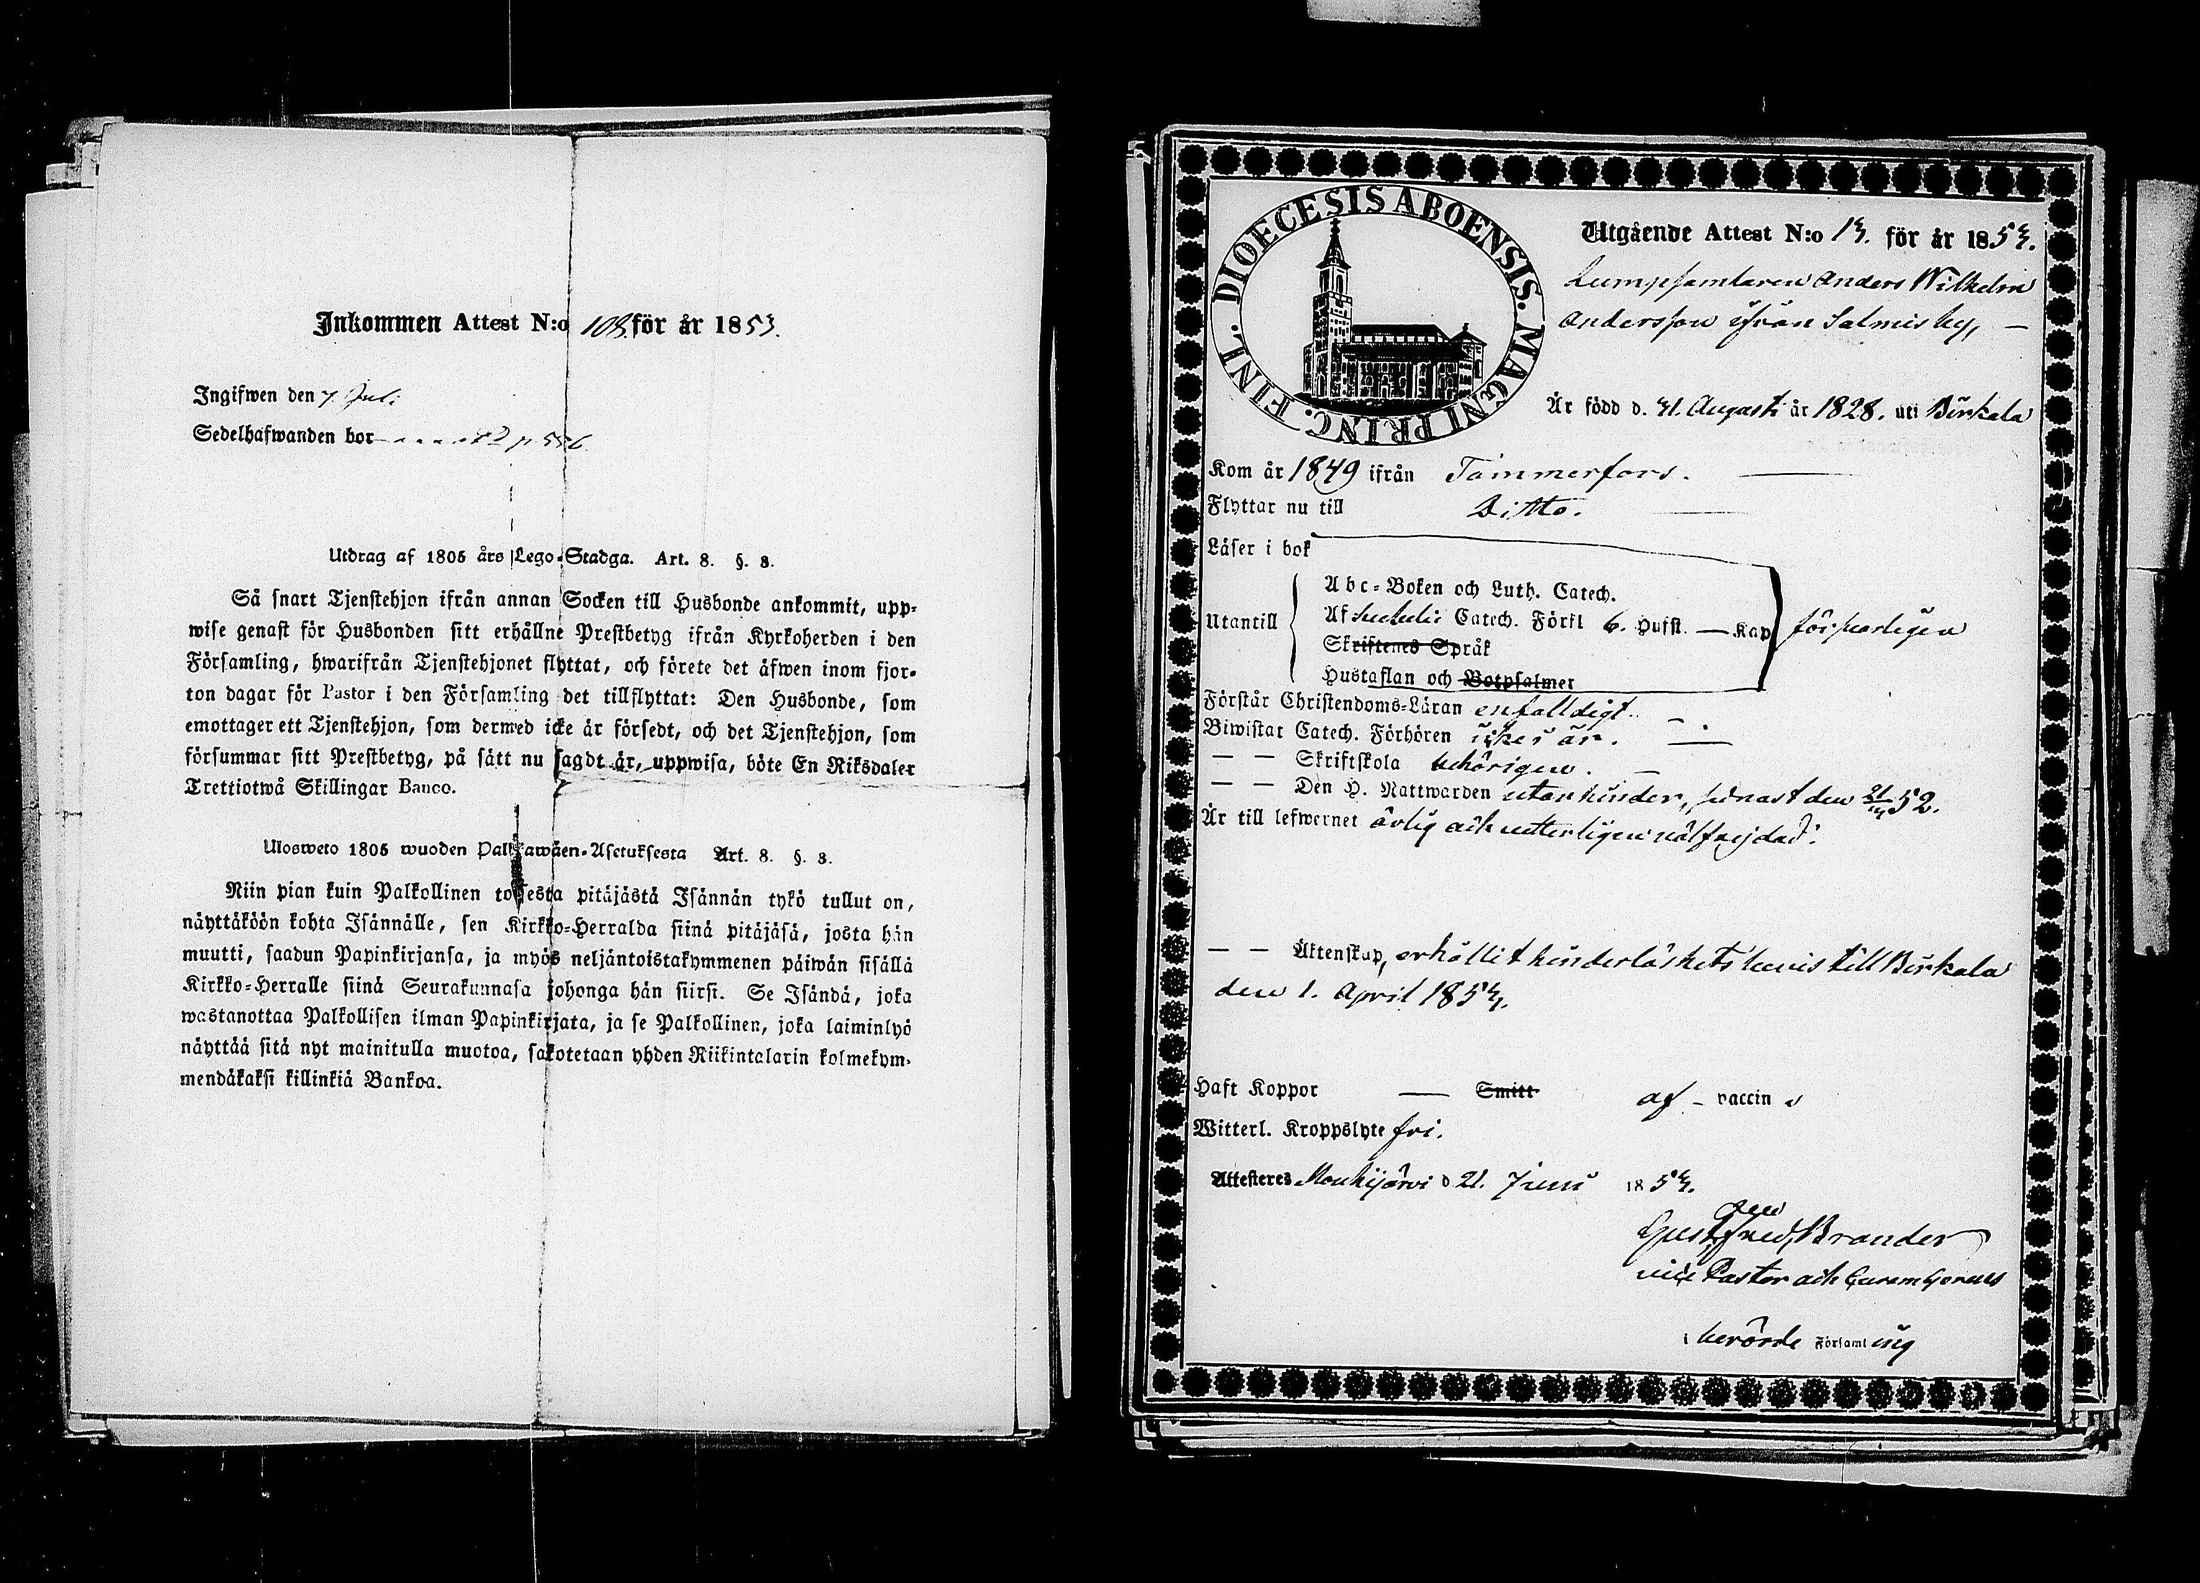 Inkommen Attest N:o 108. för år 1853.
Ingifwen den 7. Juli
Sedelhafwanden bor 2 p 556
Utdrag af 1805 års Lego-Stadga. Art. 8. §. 3.
Så snart Tjenstehjon ifrån annan Socken till Husbonde ankommit, upp-
wise genast för Husbonden sitt erhållne Prestbetyg ifrån Kyrkoherden i den
Församling, hwarifrån Tjenstehjonet flyttat, och förete det äfwen inom fjor-
ton dagar för Pastor i den Församling det tillflyttat: Den Husbonde, som
emottager ett Tjenstehjon, som dermed icke är försedt, och det Tjenstehjon, som
försummar sitt Prestbetyg, på sätt nu sagdt är, uppwisa, böte En Riksdaler
Trettiotwå Skillingar Banco.
Ulosweto 1805 wuoden Palkkawäen-Asetuksesta Art. 8. §. 3.
Niin pian kuin Palkollinen toisesta pitäjästä Isännän tykö tullut on,
näyttäköön kohta Isännälle, sen Kirkko-Herralda siinä pitäjäsä, josta hän
muutti, saadun Papinkirjansa, ja myös neljäntoistakymmenen päiwän sisällä
Kirkko-Herralle siinä Seurakunnasa johonga hän siirsi. Se Isändä, joka
wastanottaa Palkollisen ilman Papinkirjata, ja se Palkollinen, joka laiminlyö
näyttää sitä nyt mainitulla muotoa, sakotetaan yhden Riikintalarin kolmekym-
mendäkaksi killinkiä Bankoa.
DIOECESIS ABOENSIS. MAGNI PRINC. FINL.
Utgående Attest N:o 13. för år 1853.
Lumpsamlaren Anders Wilhelm
Andersson ifrån Salmis by,
Är född d. 31. Augusti år 1828. uti Birkala
Kom år 1849 ifrån Tammerfors.
Flyttar nu till Ditto.
Läser i bok
Abc-Boken och Luth. Catech.
Utantill Af Svebelii Catech. Förkl 6. Hufst. — Kap försvarligen
Skriftenes Språk
Hustaflan och Botpsalmer
Förstår Christendoms-Läran enfalldigt.
Biwistat Catech. Förhören i år.
— — Skriftskola behörigen.
— — Den H. Nattwarden utan hinder, senast den 52.
Är till lefwernet ärlig och wälfrejdad.
— — Äktenskap, erhållit hinderlöshets bevis till Birkala
den 1. April 1853.
Haft Koppor — Smitt af - vaccin
Witterl. Kroppslyte fri.
Attesteras Mouhijärvi d 21. Juni 1853.
Gust. Fred. Brander
vice Pastor och
i berörde Församling